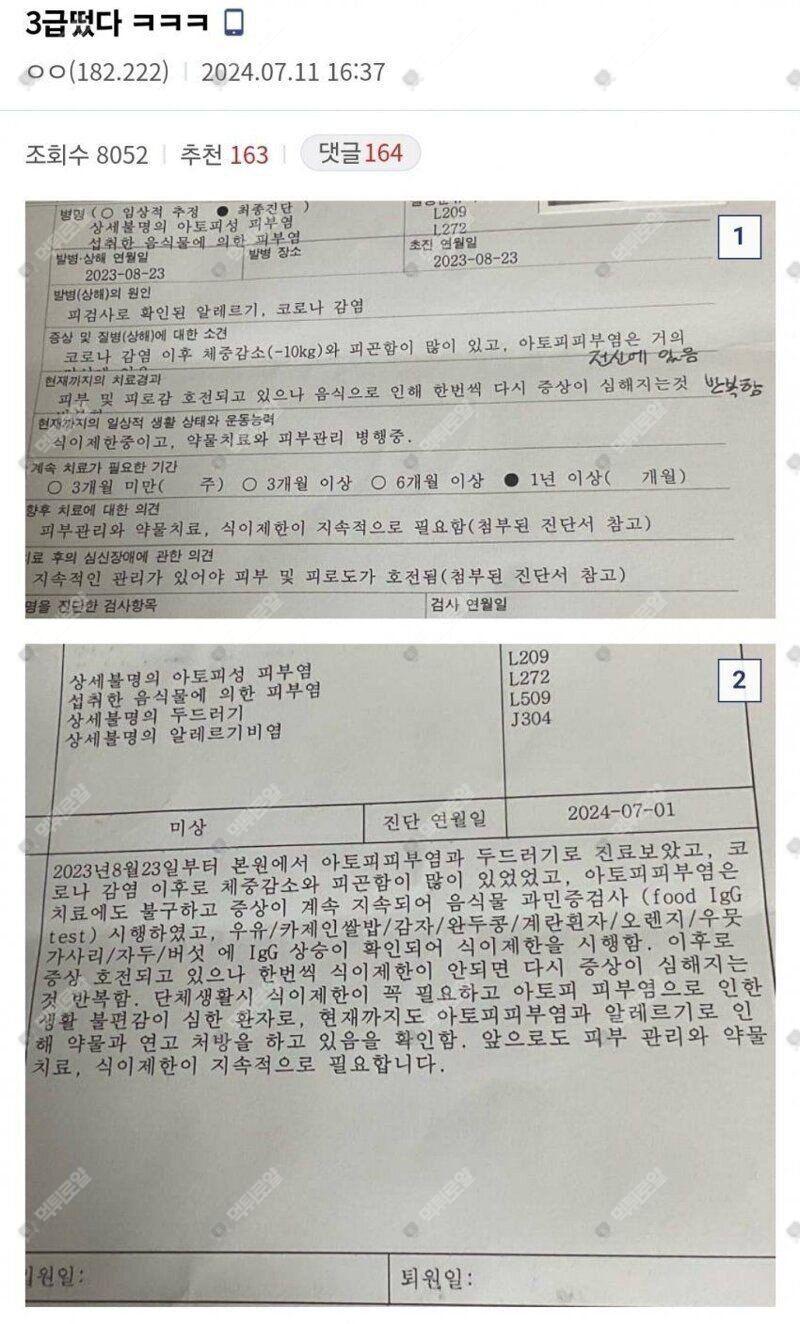 3급떴다 ㅋㅋㅋ
ㅇㅇ(182.222) | 2024.07.11 16:37
조회수 8052 | 추천 163 | 댓글 164
1
병명 ( ○ 임상적 추정 ● 최종진단 )
상세불명의 아토피성 피부염 L209
섭취한 음식물에 의한 피부염 L272
발병·상해 연월일 발병 장소 초진 연월일
2023-08-23 2023-08-23
발병(상해)의 원인
피검사로 확인된 알레르기, 코로나 감염
증상 및 질병(상해)에 대한 소견
코로나 감염 이후 체중감소(-10kg)와 피곤함이 많이 있고, 아토피피부염은 거의
전신에 있음
현재까지의 치료경과
피부 및 피로감 호전되고 있으나 음식으로 인해 한번씩 다시 증상이 심해지는것 반복함
현재까지의 일상적 생활 상태와 운동능력
식이제한중이고, 약물치료와 피부관리 병행중.
계속 치료가 필요한 기간
○ 3개월 미만( 주) ○ 3개월 이상 ○ 6개월 이상 ● 1년 이상( 개월)
향후 치료에 대한 의견
피부관리와 약물치료, 식이제한이 지속적으로 필요함(첨부된 진단서 참고)
료 후의 심신장애에 관한 의견
지속적인 관리가 있어야 피부 및 피로도가 호전됨(첨부된 진단서 참고)
명을 진단한 검사항목 검사 연월일
2
상세불명의 아토피성 피부염 L209
섭취한 음식물에 의한 피부염 L272
상세불명의 두드러기 L509
상세불명의 알레르기비염 J304
미상 진단 연월일 2024-07-01
2023년8월23일부터 본원에서 아토피피부염과 두드러기로 진료보았고, 코
로나 감염 이후로 체중감소와 피곤함이 많이 있었었고, 아토피피부염은
치료에도 불구하고 증상이 계속 지속되어 음식물 과민증검사 (food IgG
test) 시행하였고, 우유/카제인쌀밥/감자/완두콩/계란흰자/오렌지/우뭇
가사리/자두/버섯 에 IgG 상승이 확인되어 식이제한을 시행함. 이후로
증상 호전되고 있으나 한번씩 식이제한이 안되면 다시 증상이 심해지는
것 반복함. 단체생활시 식이제한이 꼭 필요하고 아토피 피부염으로 인한
생활 불편감이 심한 환자로, 현재까지도 아토피피부염과 알레르기로 인
해 약물과 연고 처방을 하고 있음을 확인함. 앞으로도 피부 관리와 약물
치료, 식이제한이 지속적으로 필요합니다.
입원일: 퇴원일:
먹튀로얄